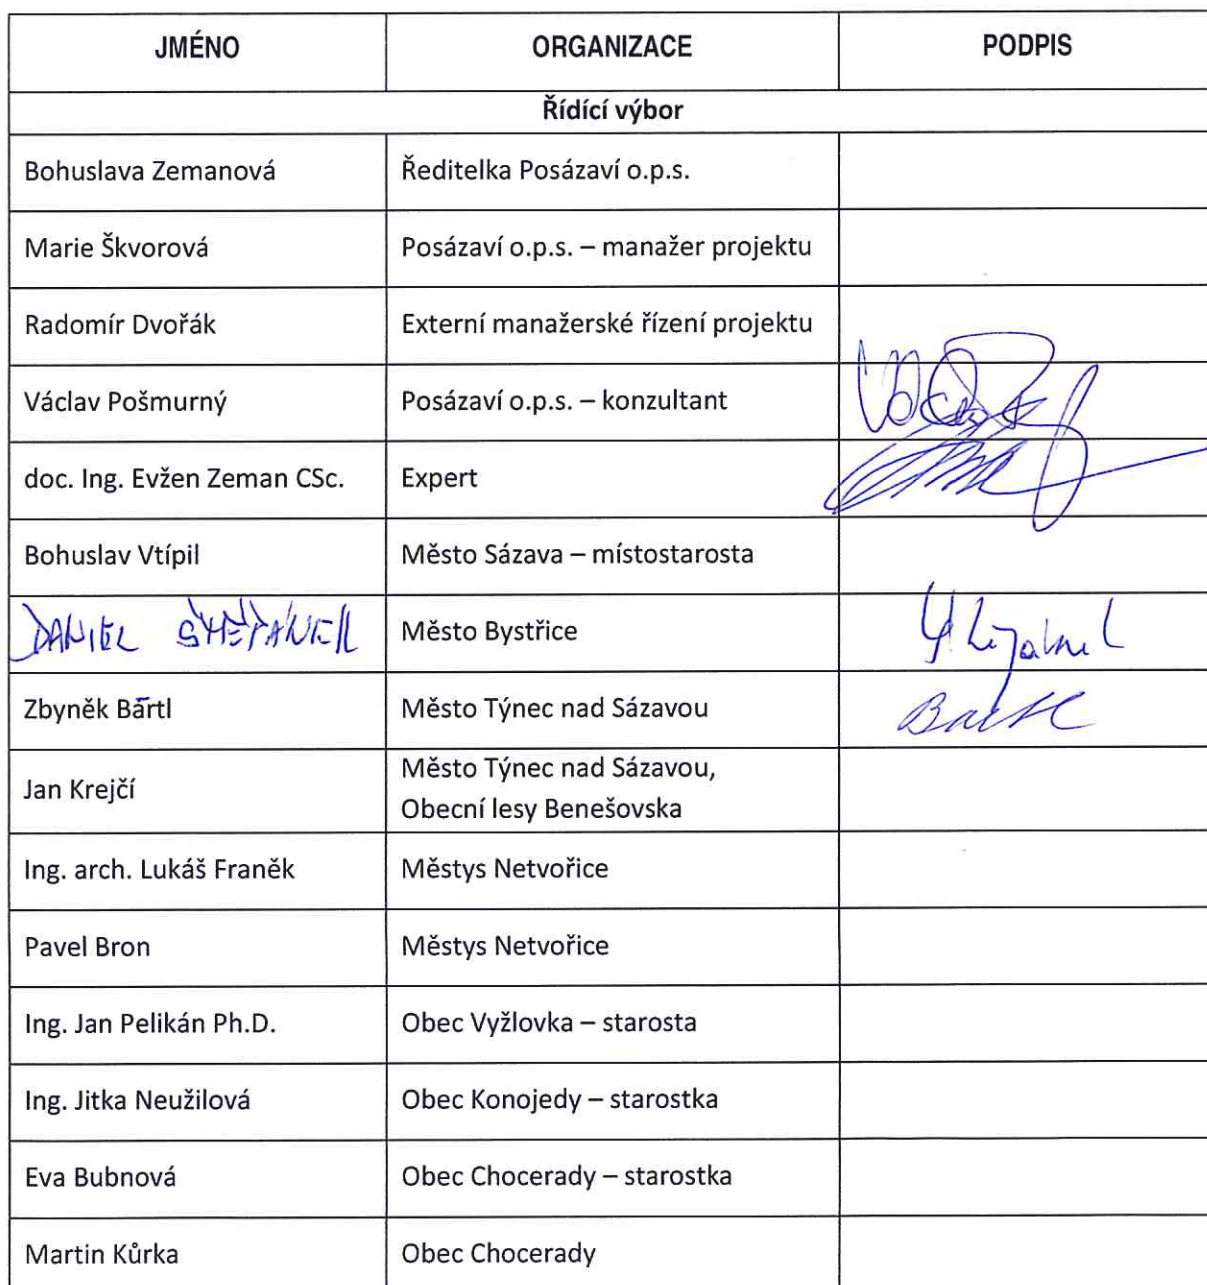 JMÉNO ORGANIZACE PODPIS
Řídící výbor
Bohuslava Zemanová Ředitelka Posázaví o.p.s.
Marie Škvorová Posázaví o.p.s. – manažer projektu
Radomír Dvořák Externí manažerské řízení projektu
Václav Pošmurný Posázaví o.p.s. – konzultant
doc. Ing. Evžen Zeman CSc. Expert
Bohuslav Vtípil Město Sázava – místostarosta
DANIEL ŠTĚPÁNEK Město Bystřice
Zbyněk Bartl Město Týnec nad Sázavou
Jan Krejčí Město Týnec nad Sázavou,
Obecní lesy Benešovska
Ing. arch. Lukáš Franěk Městys Netvořice
Pavel Bron Městys Netvořice
Ing. Jan Pelikán Ph.D. Obec Vyžlovka – starosta
Ing. Jitka Neužilová Obec Konojedy – starostka
Eva Bubnová Obec Chocerady – starostka
Martin Kůrka Obec Chocerady